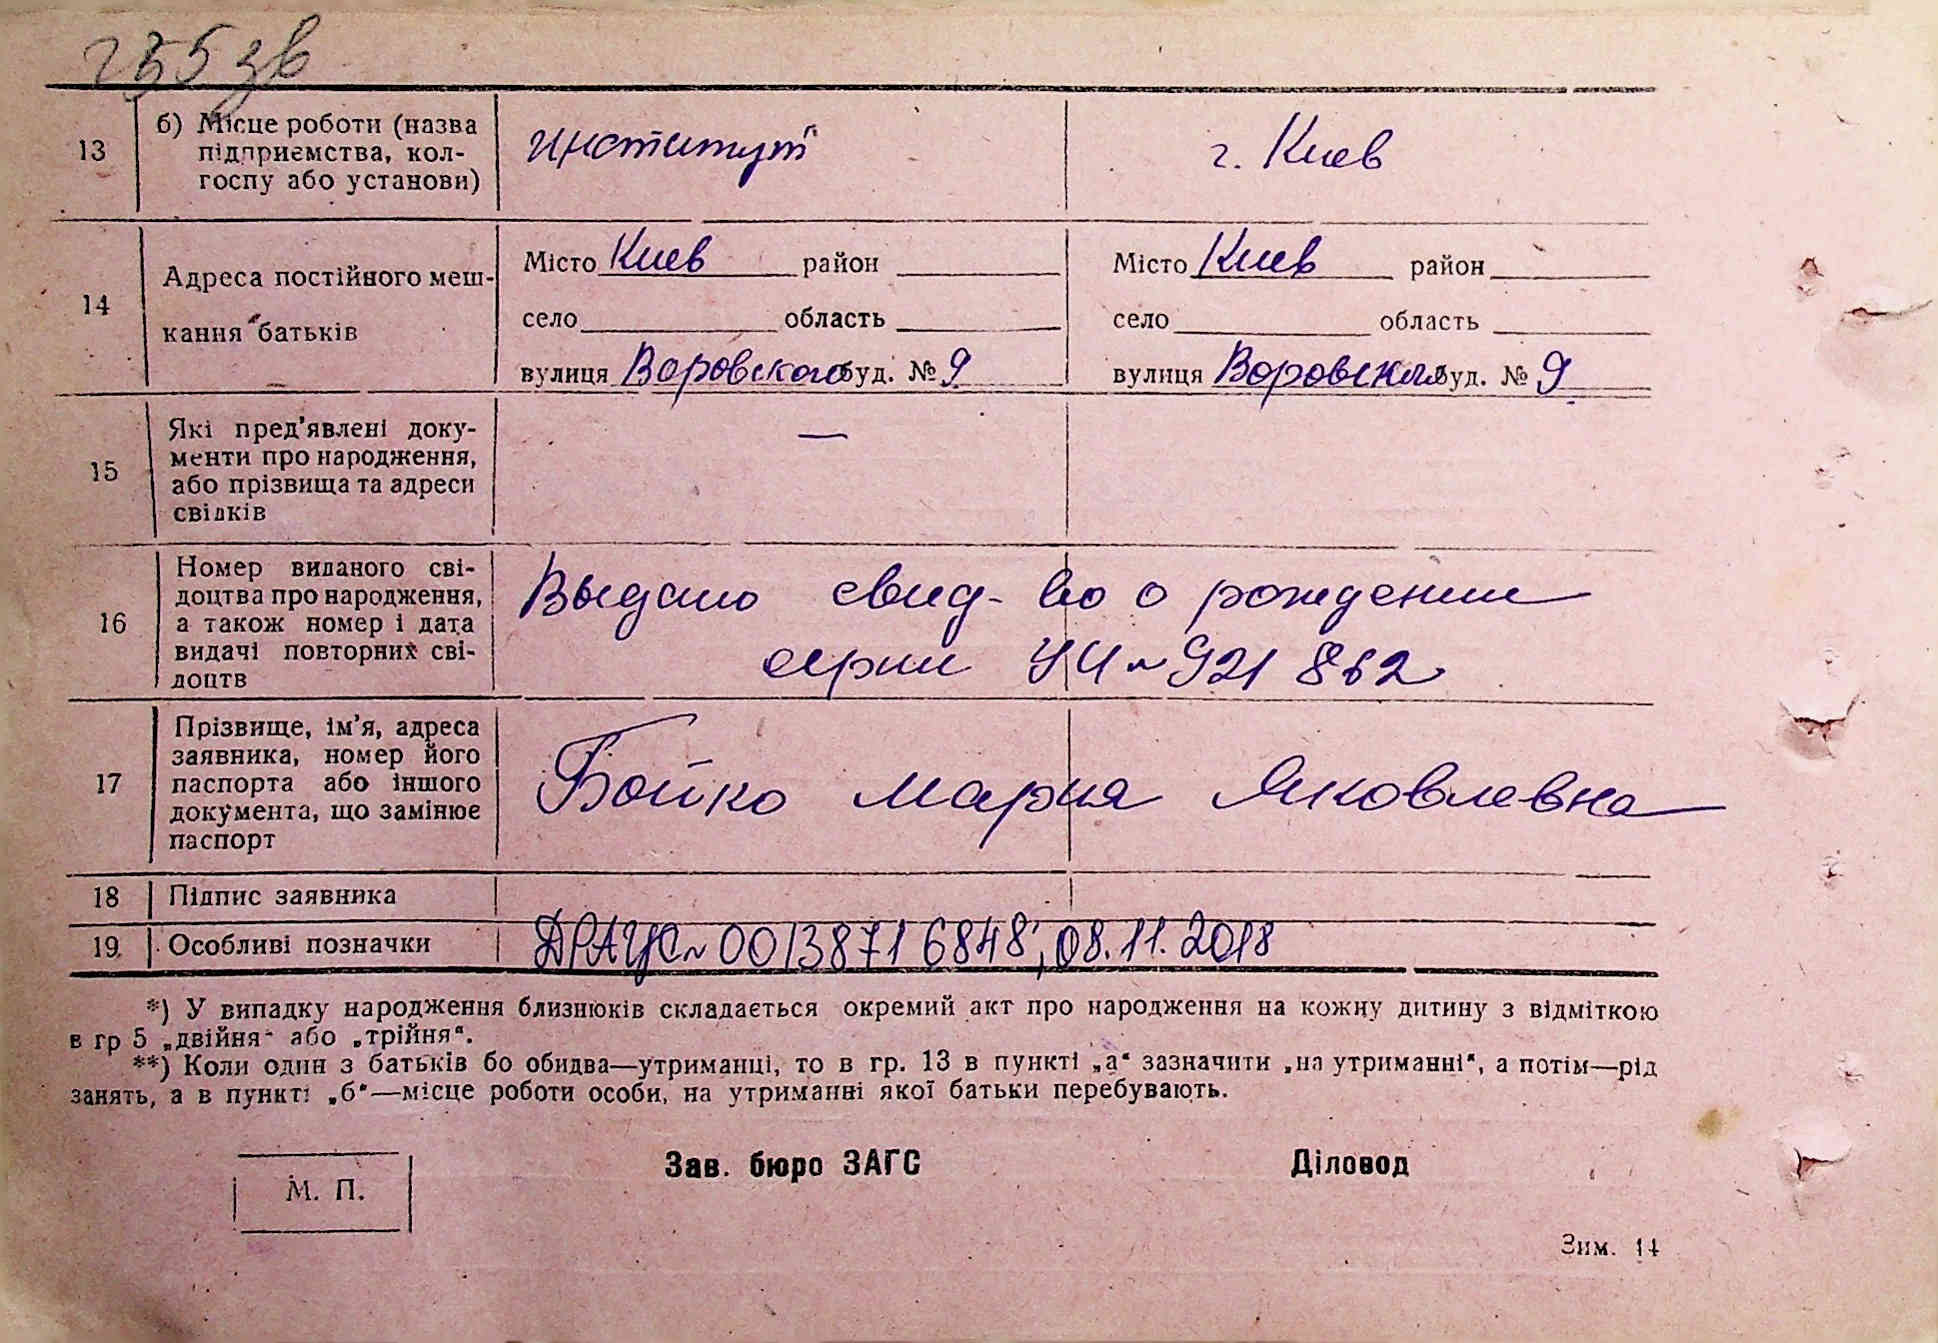 13 б) Місце роботи (назва підприємства, колгоспу або установи) институт г. Киев
14 Адреса постійного меш-
кання батьків
Місто Киев район Місто Киев район
село область село область
вулиця Воровского буд. № 9 вулиця Воровского буд. № 9
15 Які пред'явлені доку-
менти про народження,
або прізвища та адреси
свідків
—
16 Номер виданого сві-
доцтва про народження,
а також номер і дата
видачі повторних сві-
доцтв
Выдано свид-во о рождении
серии УЧ № 921 862
17 Прізвище, ім'я, адреса
заявника, номер його
паспорта або іншого
документа, що замінює
паспорт
Бойко Мария Яковлевна
18 Підпис заявника
19. Особливі позначки ДРАЦС № 00138716848, 08.11.2018
*) У випадку народження близнюків складається окремий акт про народження на кожну дитину з відміткою
в гр 5 „двійня" або „трійня".
**) Коли один з батьків бо обидва—утриманці, то в гр. 13 в пункті „а" зазначити „на утриманні", а потім—рід
занять, а в пункті „б"—місце роботи особи, на утриманні якої батьки перебувають.
М. П. Зав. бюро ЗАГС Діловод
Зим. 14